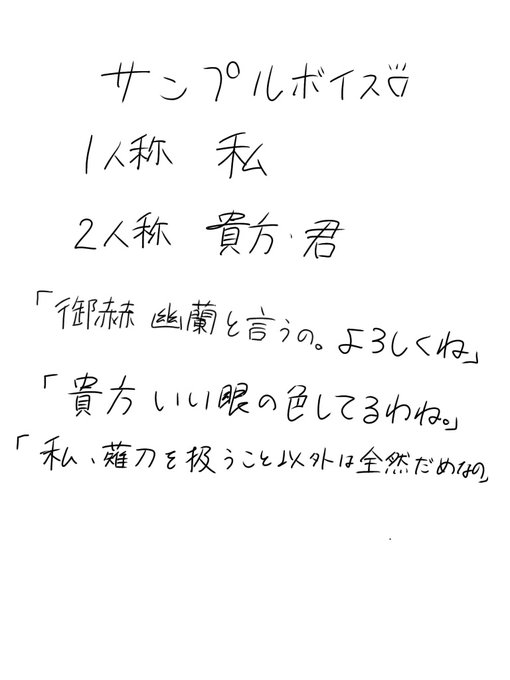 サンプルボイス
1人称 私
2人称 貴方・君
「御赫 幽蘭と言うの。よろしくね」
「貴方 いい眼の色してるわね。」
「私、薙刀を扱うこと以外は全然だめなの」